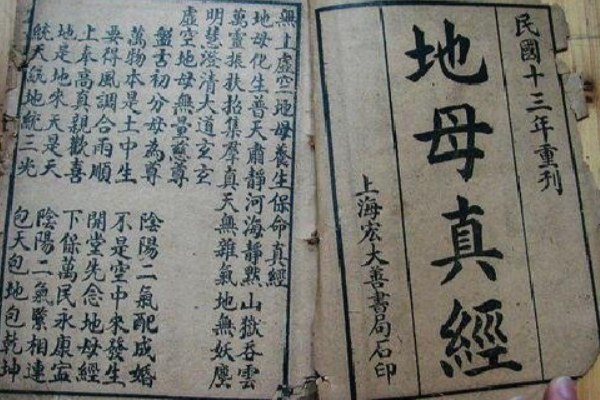 民國十三年重刊
地母真經
上海宏大善書局石印
無上虛空地母養生保命真經
地母化生普天肅靜河海靜默山嶽吞雲
萬靈振扶招集羣真天無雜氣地無妖塵
明慧澄清大道玄玄
虛空地母無量慈尊
盤古初分母為尊 陰陽二氣配成婚
萬物本是土中生 不是空中來發生
要得風調合雨順 開堂先念地母經
上奉高真親歡喜 下保萬民永康寧
地是地來天是天 陰陽二氣緊相連
統天統地統三光 包天包地包乾坤